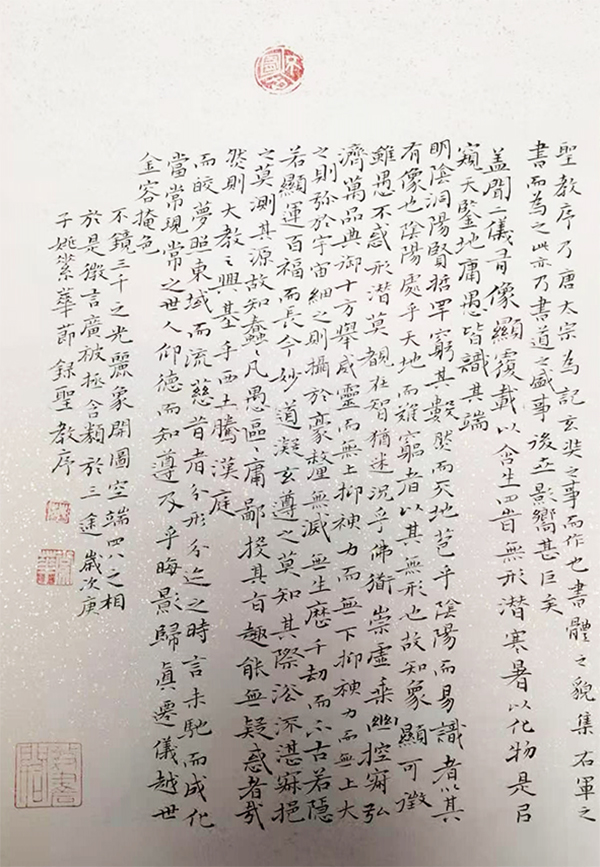 聖教序乃唐太宗為記玄奘之事而作也書體之貌集右軍之
書而為之此亦乃書道之盛事後立影嚮甚巨矣
蓋聞二儀有像顯覆載以含生四時無形潜寒暑以化物是以
窺天鑒地庸愚皆識其端
明陰洞陽賢哲罕窮其數然而天地苞乎陰陽而易識者以其
有像也陰陽處乎天地而難窮者以其無形也故知象顯可徵
雖愚不惑形潜莫覩在智猶迷況乎佛道崇虛乘幽控寂弘
濟萬品典御十方舉威靈而無上抑神力而無下抑神力而無上大
之則弥於宇宙細之則攝於豪釐無滅無生歷千劫而不古若隱
若顯運百福而長今妙道凝玄遵之莫知其際法流湛寂挹
之莫測其源故知蠢〻凡愚區〻庸鄙投其旨趣能無疑惑者哉
然則大教之興基乎西土騰漢庭
而皎夢照東域而流慈昔者分形分迹之時言未馳而成化
當常現常之世人仰德而知遵及乎晦影歸真遷儀越世
金容掩色
不鏡三千之光麗象開圖空端四八之相
於是微言廣被拯含類於三途歲次庚
子紫華節錄聖教序